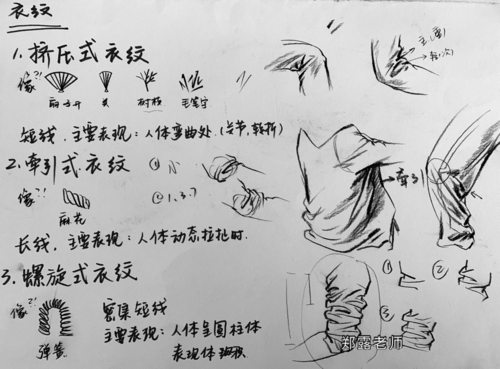 衣纹
1. 挤压式衣纹
像?!
扇子开 关 树枝 毛笔字
主(重)
轻(次)
短线，主要表现：人体弯曲处.(关节,转折)
2. 牵引式衣纹 ① N
像?! ② 1.3.7
麻花
牵引
长线，主要表现：人体动态拉扯时.
3. 螺旋式衣纹
像?! 密集短线
弹簧 主要表现：人体呈圆柱体
表现体
① ② ③
郑露老师